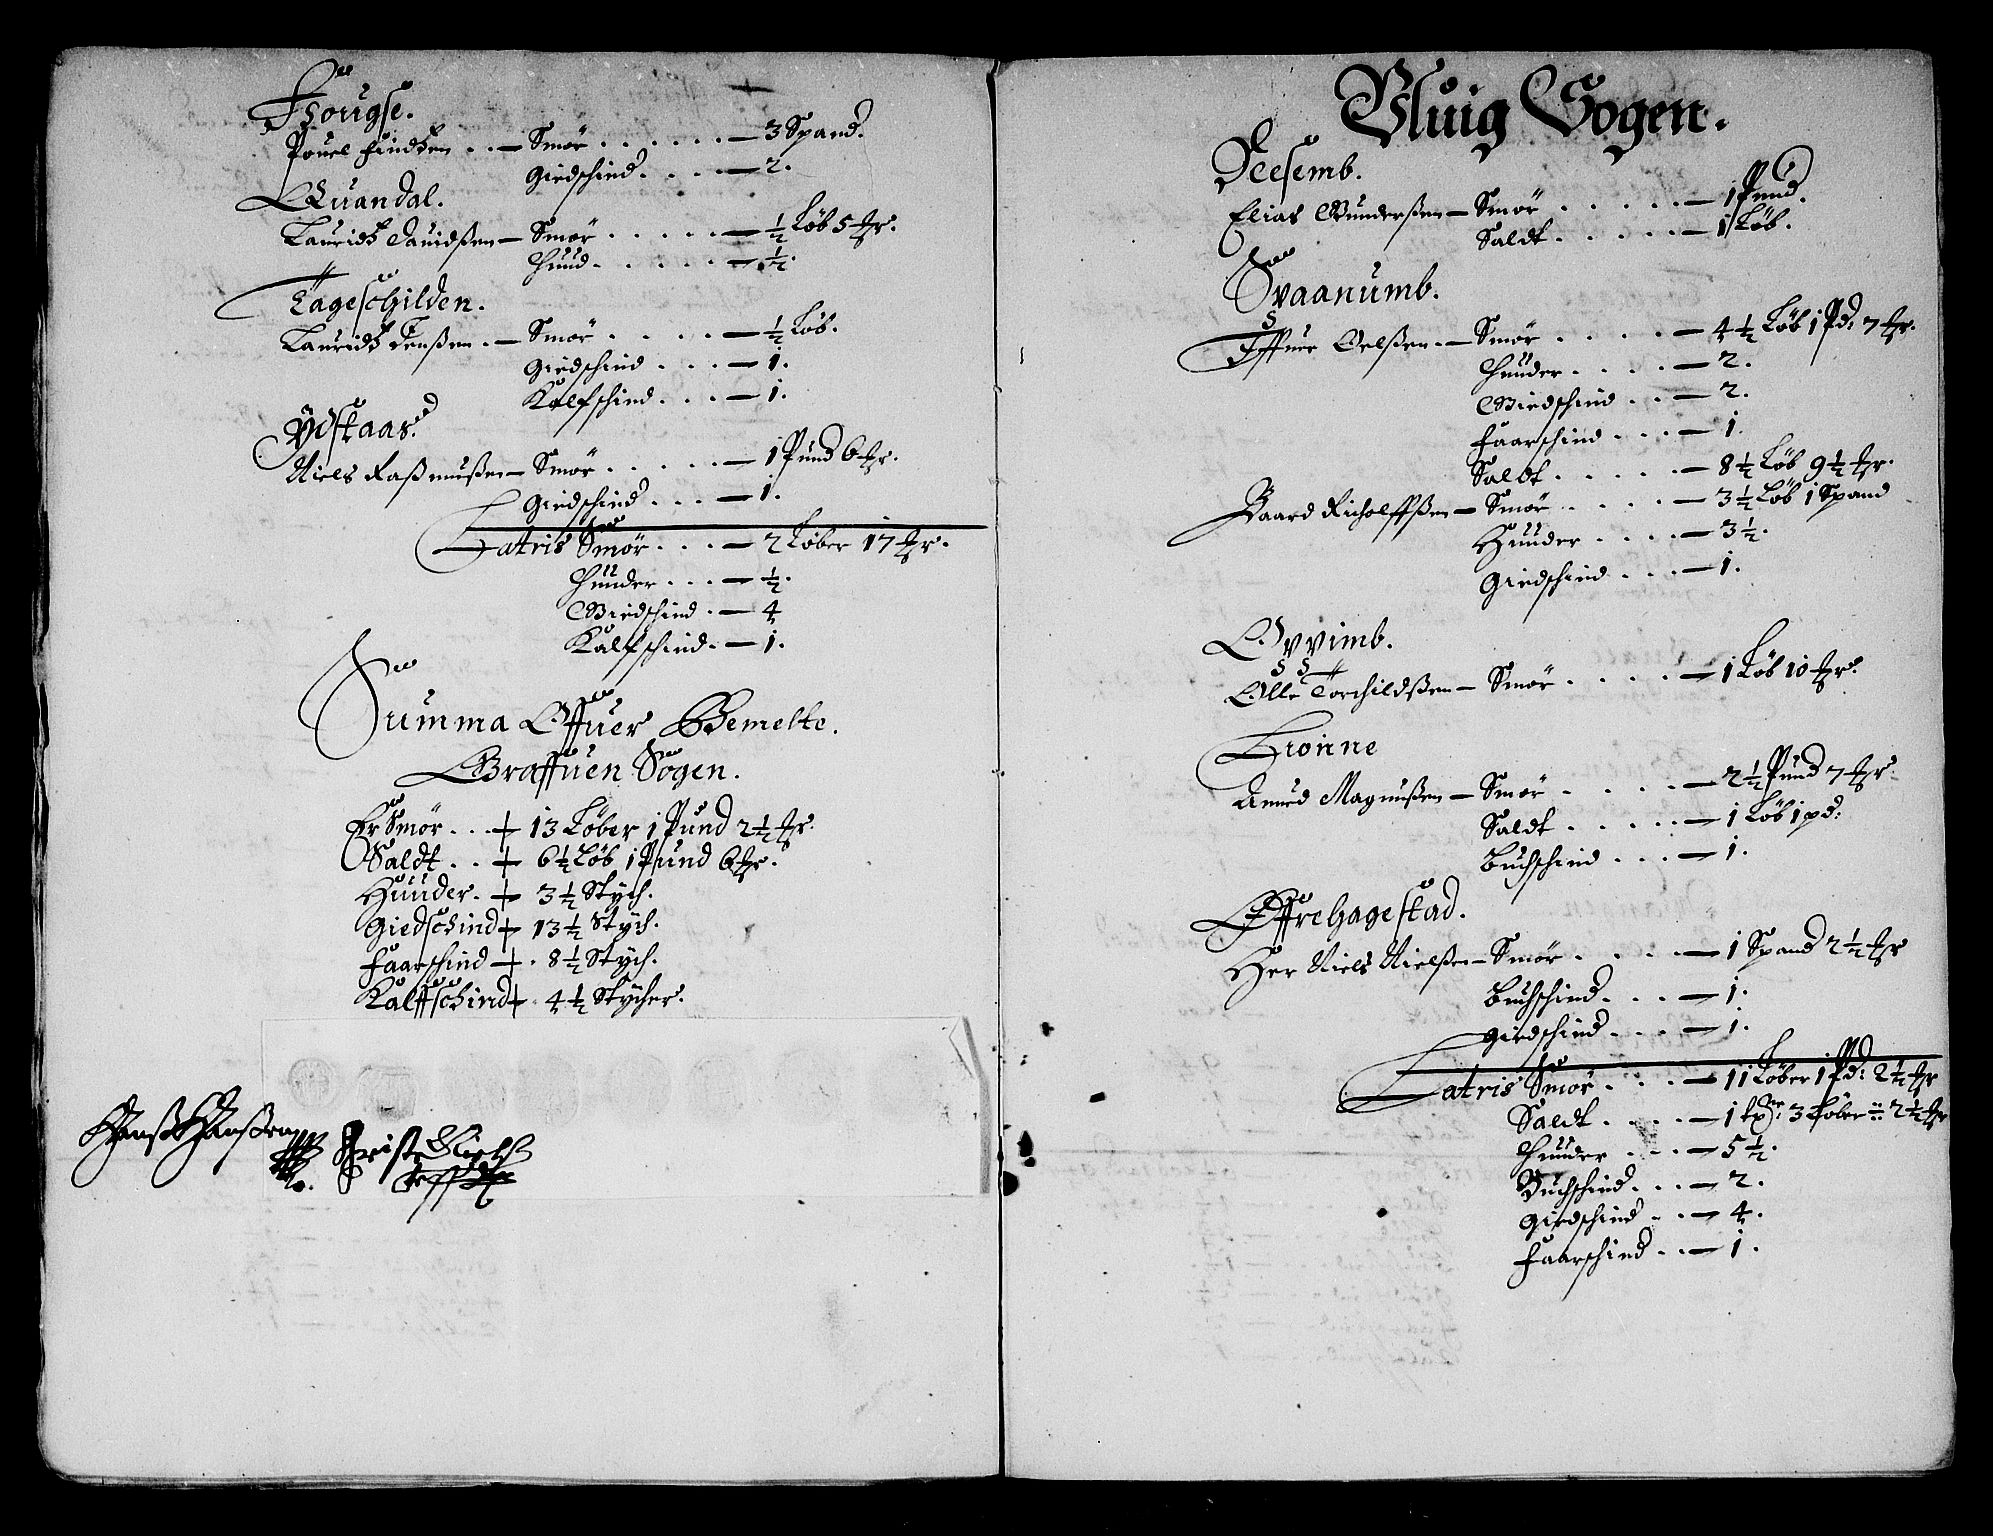 Hougse.
Pouel Findsen . . — Smør . . . . . . — 3 Spand.
Giedschind . . . . — 2.
Quandal.
Lauridtz Dauidßen — Smør . . . . . — ½ Løb 5 mr.
Huud . . . . . — ½.
Tageschilden.
Lauridtz Jenßen . — Smør . . . . — ½ Løb.
Giedschind . . . — 1.
Kalfschind . . . — 1.
Ydstaas.
Niels Raßmußen — Smør . . . . . — 1 Pund 6 mr.
Giedschind . . . — 1.
Latris Smør . . . — 2 Løber 17 mr.
Huuder . . . — ½.
Giedschind . — 4
Kalfschind . — 1.
Summa Offuer Bemelte.
Graffuen Sogen.
Er Smør . . + 13 Løber 1 Pund 2½ mr.
Saldt . . + 6½ Løb 1 Pund 6 mr.
Huuder . + 3½ Stych.
Giedschind + 13½ Stych.
Faarschind + . 8½ Stych.
Kalffschind + . 4½ Stycher.
Hanß Hanßen
Christ Niels
Vluig Sogen.
Seesemb.
Elias Gunderßen — Smør . . . . . — 1 Pund.
Saldt . . . . . — 1 Løb.
Svaanumb.
Iffuer Oelßen . — Smør . . . . — 4½ Løb 1 Pd: 7 mr.
Huuder . . . . — 2.
Giedschind . . — 2.
Faarschind . . . — 1.
Saldt . . . . . — 8½ Løb 9½ mr.
Baard Richolffßen — Smør . . . . — 3½ Løb 1 Spand
Huuder . . . . — 3½.
Giedschind . . . — 1.
Ovvimb.
Olle Torchildßen — Smør . . . . — 1 Løb 10 mr.
Lionne
Amund Magnußen — Smør . . . . — 2½ Pund 7 mr
Saldt . . . . . — 1 Løb 1 pd:
Buchschind . . . — 1.
Effrehagestad.
Her Niels Nielßen — Smør . . . . — 1 Spand 2½ mr
Buchschind . . . — 1.
Giedschind . . . — 1.
Latris Smør . . . — 11 Løber 1 Pd: 2½ mr
Saldt . . . . — 1 tøner 3 Løber :: 2½ mr
Huuder . . . — 5½.
Buchschind . . . — 2.
Giedschind . . — 4.
Faarschind . . — 1.